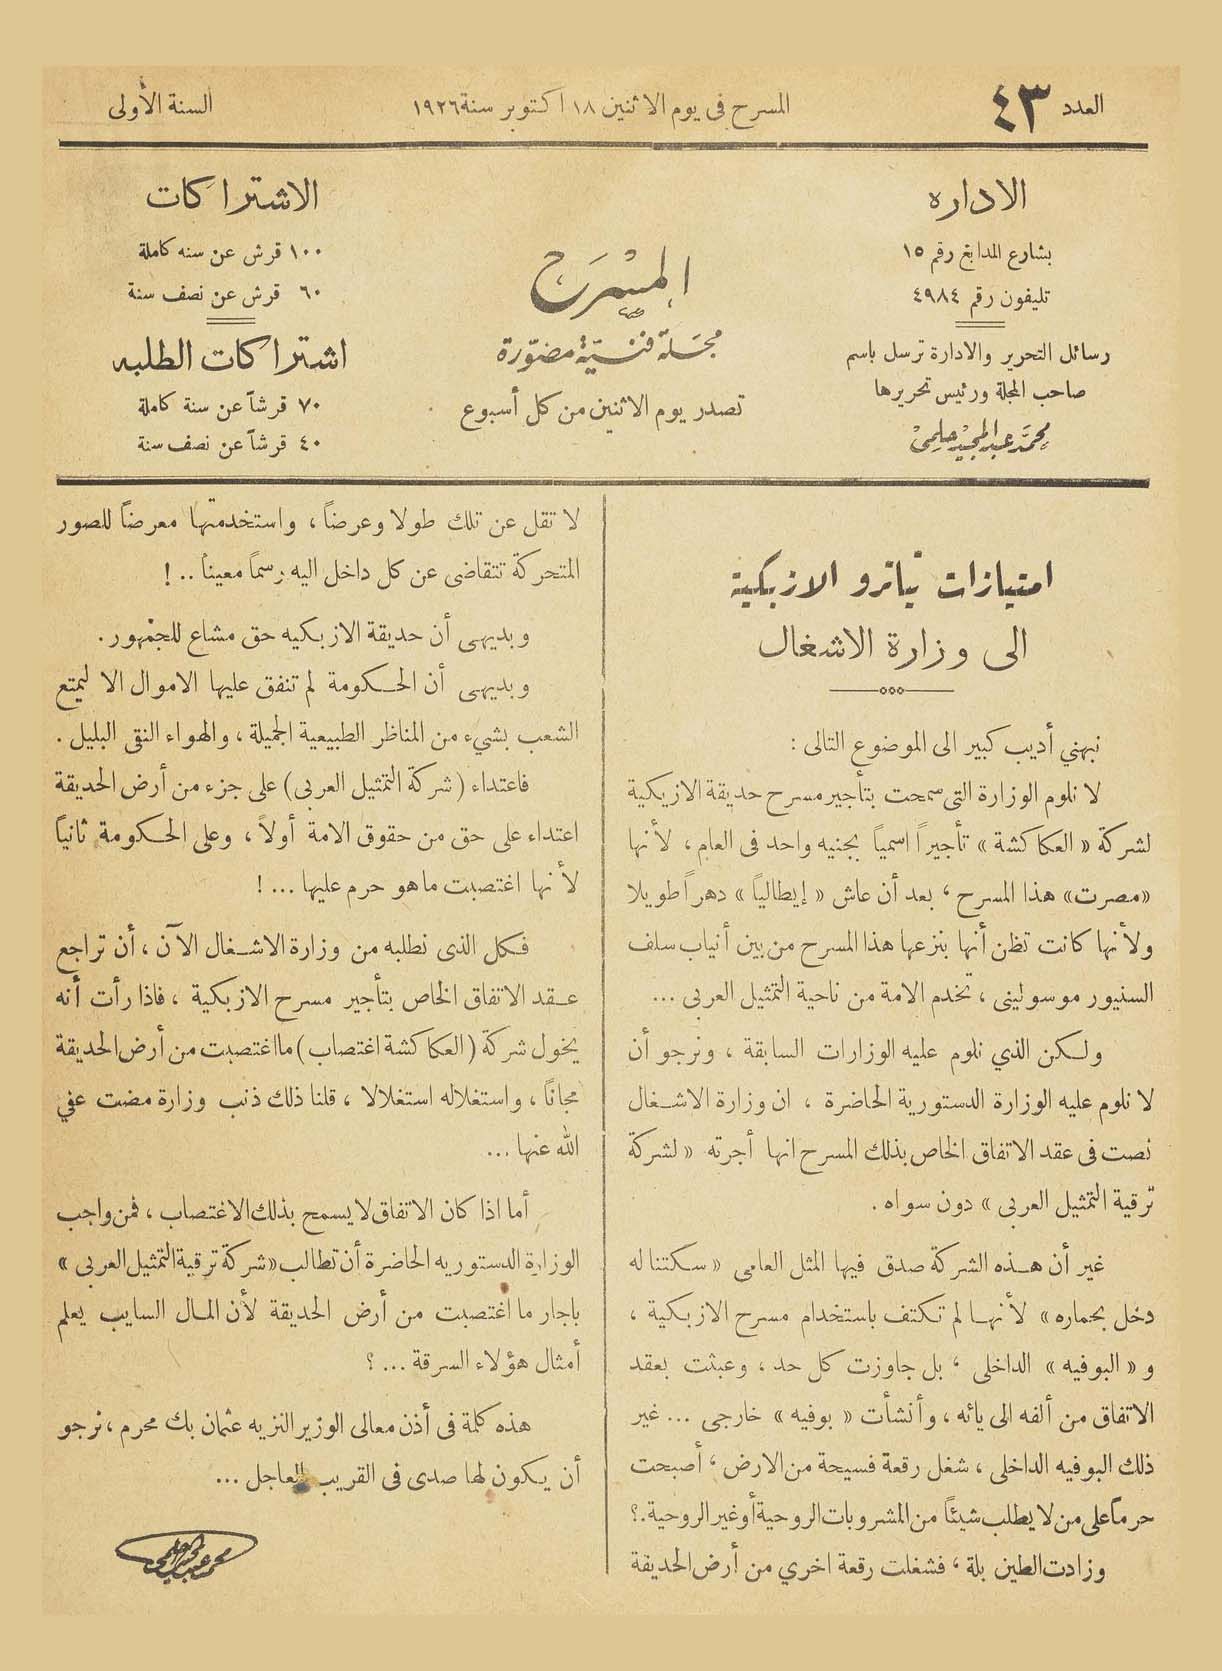 العدد ٤٣
المسرح في يوم الاثنين ١٨ اكتوبر سنة ١٩٢٦
السنة الأولى
الاداره
بشارع المدابغ رقم ١٥
تليفون رقم ٤٩٨٤
رسائل التحرير والادارة ترسل باسم
صاحب المجلة ورئيس تحريرها
محمد عبد المجيد حلمى
المسرح
مجلة فنية مصورة
تصدر يوم الاثنين من كل أسبوع
الاشتراكات
١٠٠ قرش عن سنه كاملة
٦٠ قرش عن نصف سنة
اشتراكات الطلبه
٧٠ قرشاً عن سنة كاملة
٤٠ قرشاً عن نصف سنة
امتيازات تياترو الازبكية
الى وزارة الاشغال
نبهني أديب كبير الى الموضوع التالى :
لا نلوم الوزارة التى سمحت بتأجير مسرح حديقة الازبكية
لشركة « العكاكشة » تأجيراً اسمياً بجنيه واحد فى العام ، لأنها
«مصرت» هذا المسرح ، بعد أن عاش « إيطالياً » دهراً طويلا
ولأنها كانت تظن أنها بنزعها هذا المسرح من بين أنياب سلف
السنيور موسولينى ، تخدم الامة من ناحية التمثيل العربى ...
ولكن الذي نلوم عليه الوزارات السابقة ، ونرجو أن
لا نلوم عليه الوزارة الدستورية الحاضرة ، ان وزارة الاشغال
نصت فى عقد الاتفاق الخاص بذلك المسرح انها أجرته « لشركة
ترقية التمثيل العربى » دون سواه .
غير أن هذه الشركة صدق فيها المثل العامى « سكتنا له
دخل بحماره » لأنها لم تكتف باستخدام مسرح الازبكية ،
و « البوفيه » الداخلى ، بل جاوزت كل حد ، وعبثت بعقد
الاتفاق من ألفه الى يائه ، وأنشأت « بوفيه » خارجى ... غير
ذلك البوفيه الداخلى ، شغل رقعة فسيحة من الارض ، أصبحت
حرماً على من لا يطلب شيئاً من المشروبات الروحية أو غير الروحية . ؟
وزادت الطين بلة ، فشغلت رقعة اخري من أرض الحديقة
لا تقل عن تلك طولا وعرضاً ، واستخدمتها معرضاً للصور
المتحركة تتقاضى عن كل داخل اليه رسماً معيناً .. !
وبديهى أن حديقة الازبكيه حق مشاع للجمهور .
وبديهى أن الحكومة لم تنفق عليها الاموال الا ليمتع
الشعب بشيء من المناظر الطبيعية الجميلة ، والهواء النقى البليل .
فاعتداء ( شركة التمثيل العربى ) على جزء من أرض الحديقة
اعتداء على حق من حقوق الامة أولاً ، وعلى الحكومة ثانياً
لأنها اغتصبت ما هو حرم عليها ... !
فكل الذى نطلبه من وزارة الاشغال الآن ، أن تراجع
عقد الاتفاق الخاص بتأجير مسرح الازبكية ، فاذا رأت أنه
يخول شركة ( العكاكشة اغتصاب ) ما اغتصبت من أرض الحديقة
مجاناً ، واستغلاله استغلالا ، قلنا ذلك ذنب وزارة مضت عفي
الله عنها ...
أما اذا كان الاتفاق لا يسمح بذلك الاغتصاب ، فمن واجب
الوزارة الدستوريه الحاضرة أن تطالب «شركة ترقية التمثيل العربى »
باجار ما اغتصبت من أرض الحديقة لأن المال السايب يعلم
أمثال هؤلاء السرقة ... ؟
هذه كلمة فى أذن معالى الوزير النزيه عثمان بك محرم ، نرجو
أن يكون لها صدى فى القريب العاجل ...
محمد عبد المجيد حلمى